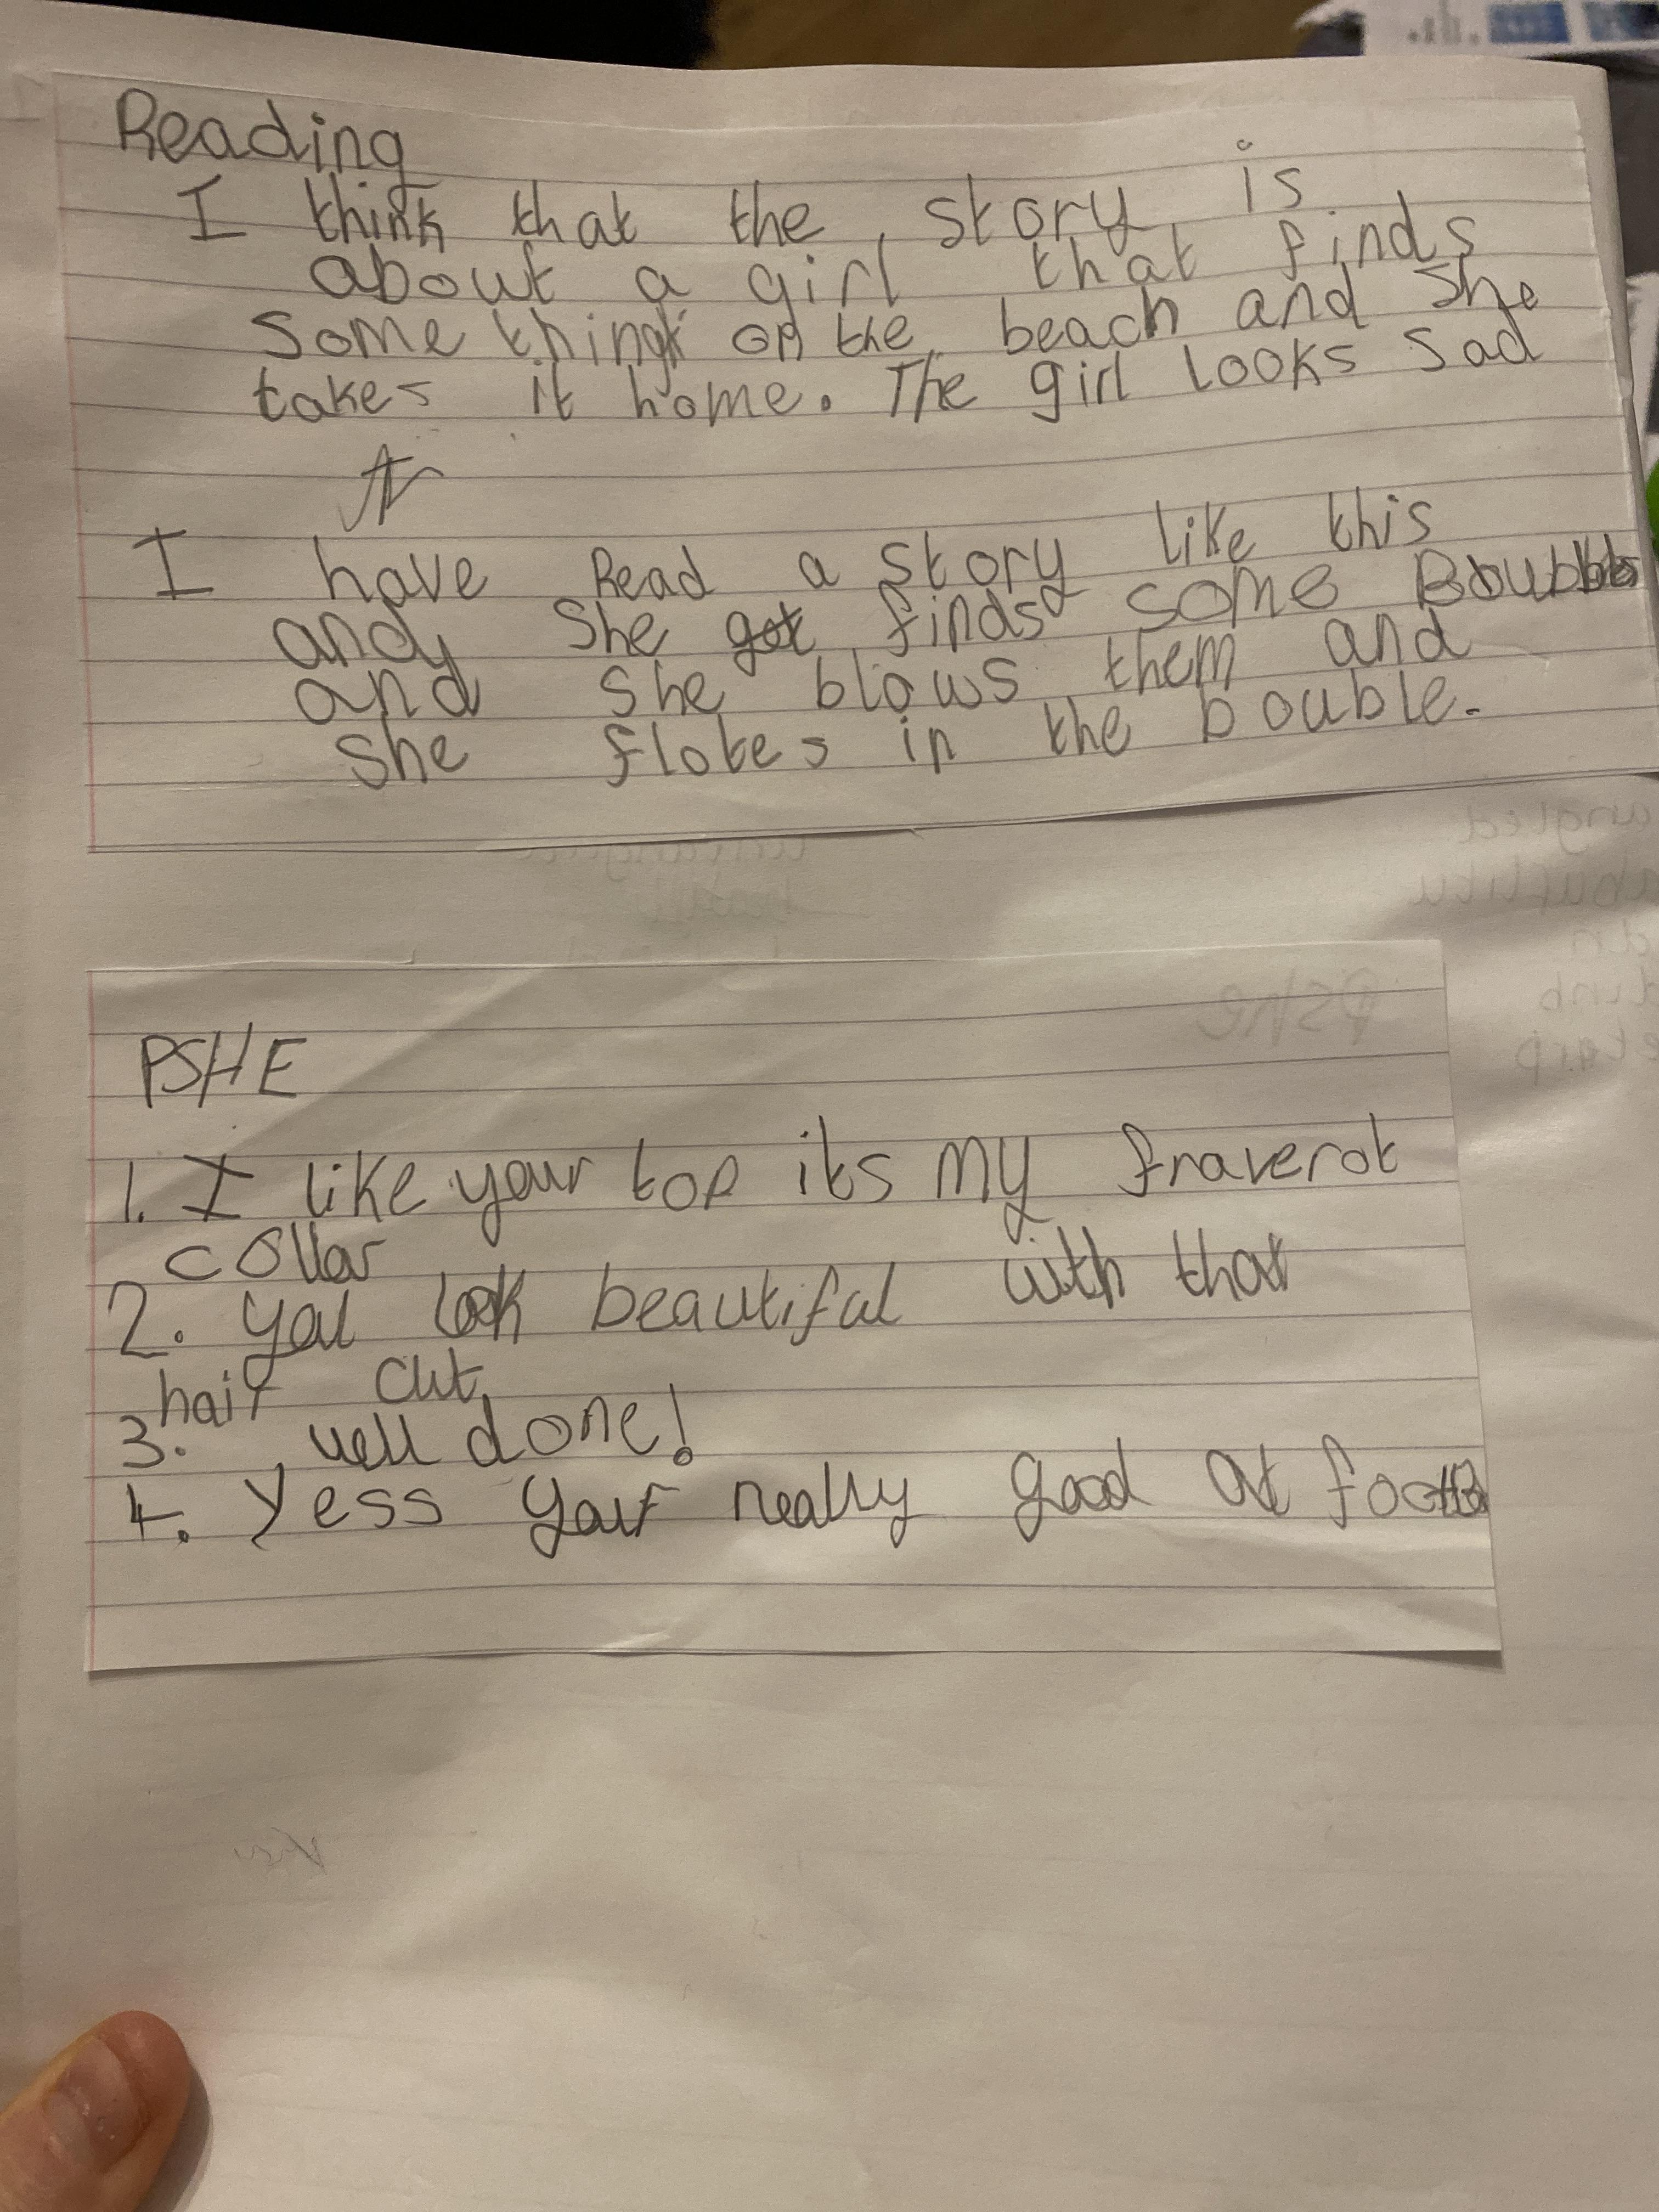 Reading
I think that the story is
about a girl that finds
some thing on the beach and she
takes it home. The girl looks sad
I have Read a story like this
and she got finds some
and she blows them and
she flotes in the bouble.
PSHE
1. I like your top its my fraverot
collar
2. you look beautiful with that
hair cut
3. well done!
4. Yess your really good at
PShe